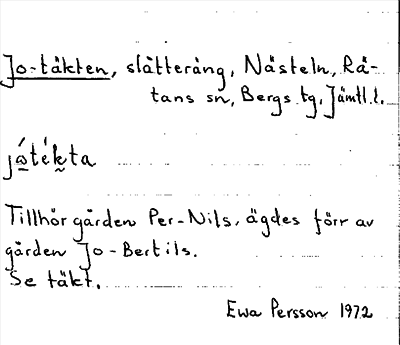 Jo-täkten, slätteräng, Nästeln, Rä-
tans sn, Bergs tg, Jämtl. l.
jo̲´té´k̬ta
Tillhör gården Per-Nils, ägdes förr av
gården Jo-Bertils.
Se täkt.
Ewa Persson 1972